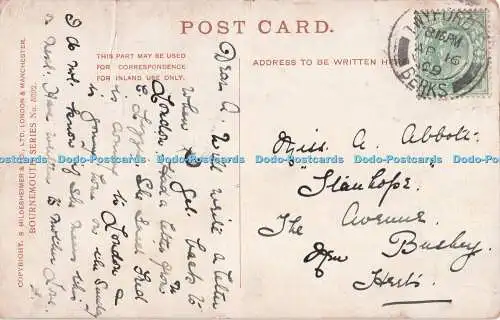 POST CARD.
THIS PART MAY BE USED
FOR CORRESPONDENCE
FOR INLAND USE ONLY.
ADDRESS TO BE WRITTEN HERE
8.15 PM
AP 16
09
BERKS
Dear A. Will write a letter
when I get back to
London. Had a letter from
E.
she said Sid
is coming to London &
is going home on the Sunday
I do not know if she means this
or next. Have written to mother. Love
A.
Miss. A. Abbott.
"Stanhope."
The Avenue.
Bushey
Herts.
COPYRIGHT, S HILDESHEIMER & CO., LTD. LONDON & MANCHESTER.
BOURNEMOUTH SERIES No.
Dodo-Postcards Dodo-Postcards Dodo-Postcards Dodo-Postcards Dodo-Postcards